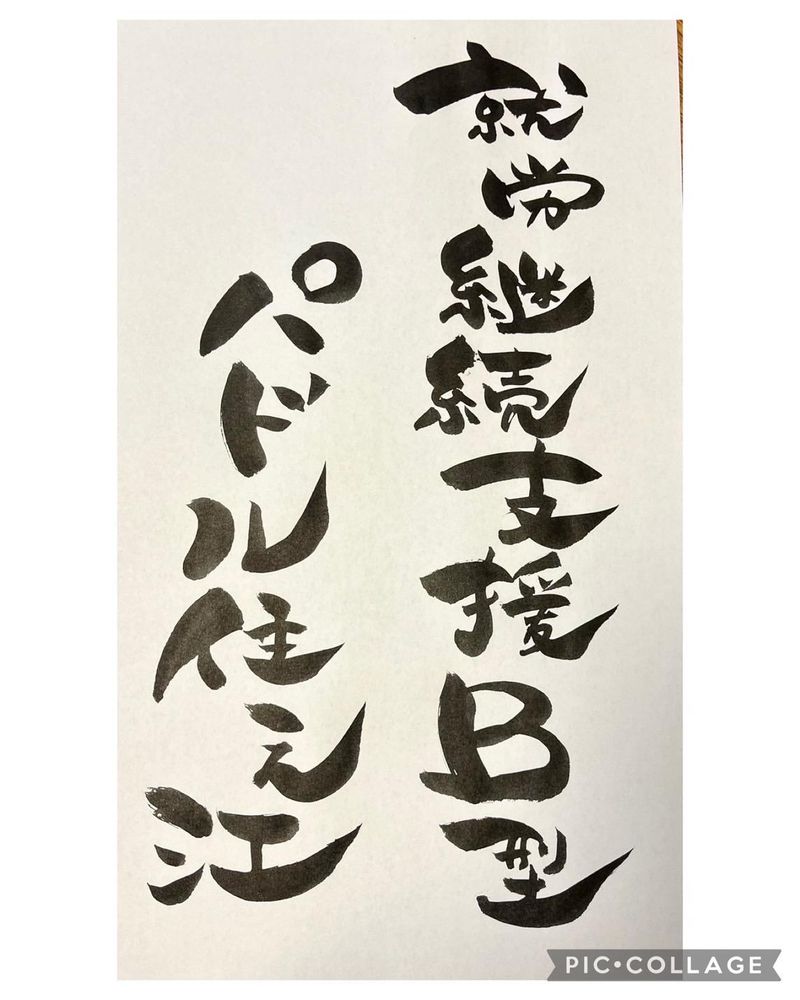 就労継続支援B型
パドル住之江
PIC•COLLAGE